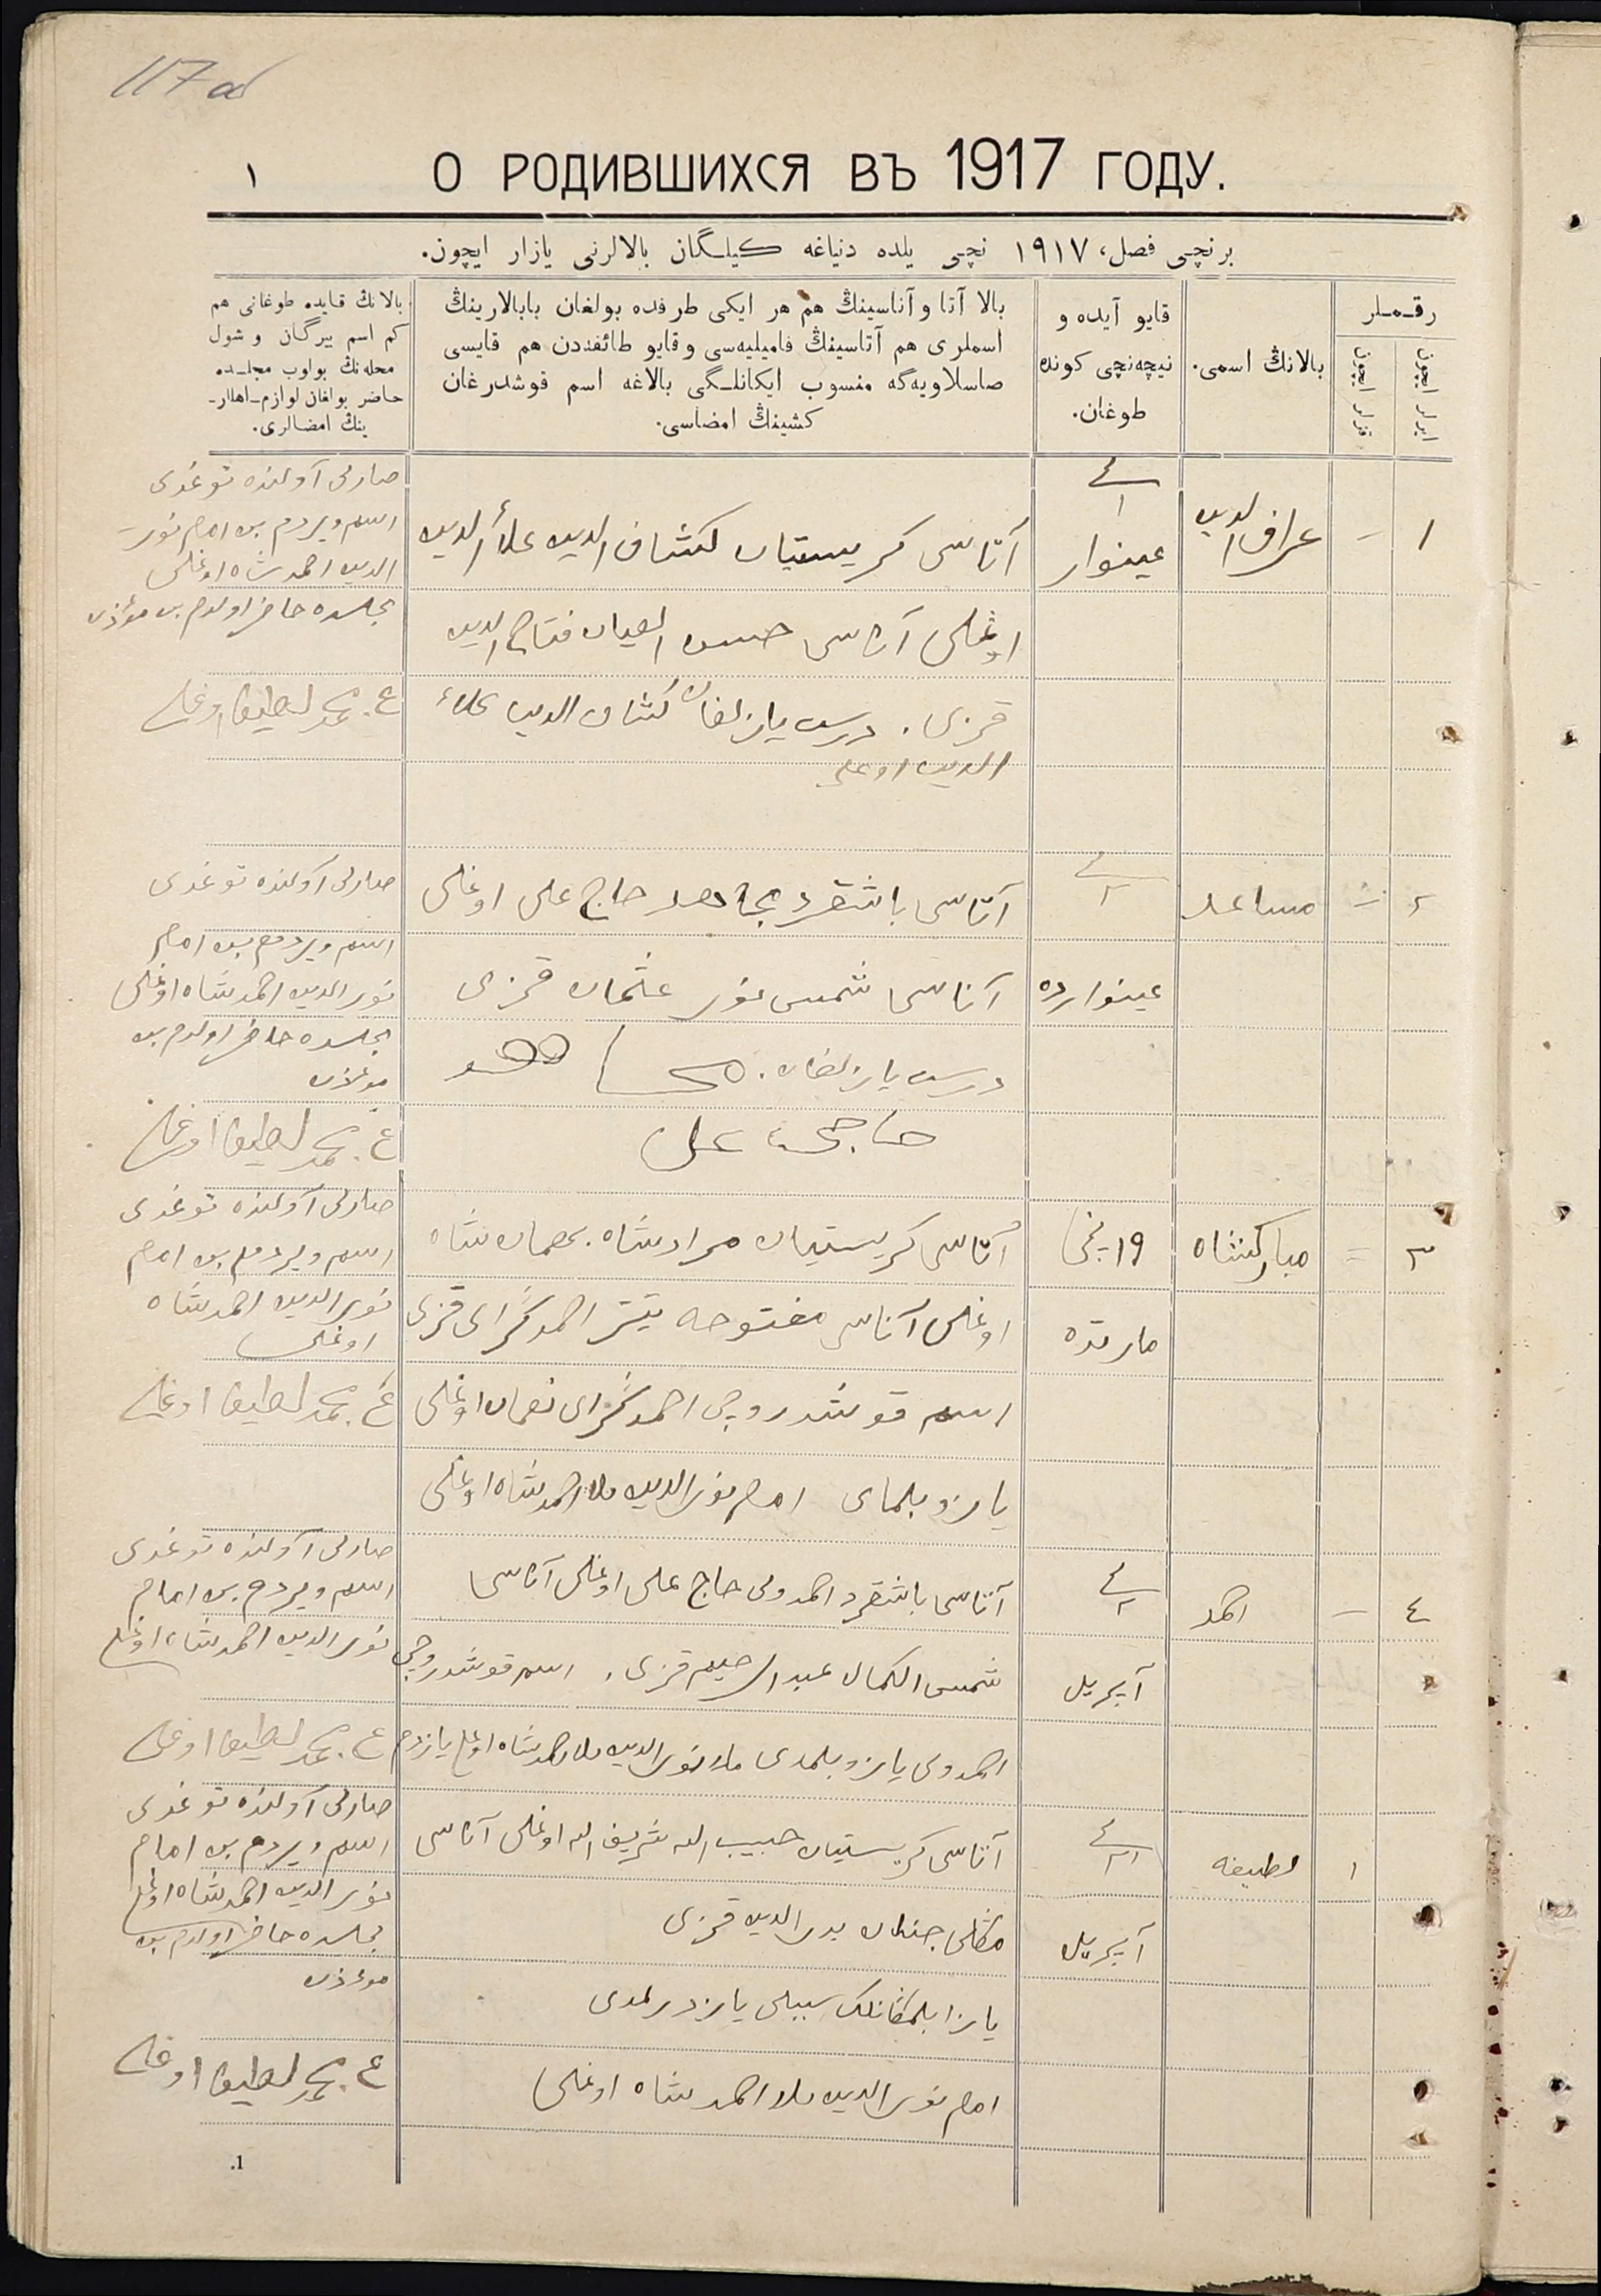 117 об
О РОДИВШИХСЯ ВЪ 1917 ГОДУ.
١
برنچی فصل، ١٩١٧ نچی یلده دنیاغه کیلـگان بالالرنی یازار ایچون.
رقـمـلر
ایرلر ایچون
قزلر ایچون
بالانڭ اسمی.
قایو آیده و
نیچه‌نچی کونده
طوغان.
بالا آتا و آناسینڭ هم هر ایکی طرفده بولغان بابالارینڭ
اسملری هم آتاسینڭ فامیلیه‌سی و قایو طائفه‌دن هم قایسی
صاسلاویه‌گه منسوب ایکانلـگی بالاغه اسم قوشدرغان
کشینڭ امضاسی.
بالانڭ قایده طوغانی هم
کم اسم بیرگان و شول
محله‌نڭ بولوب مجلـسده
حاضر بولغان لوازم-اهللر-
ینڭ امضالری.
١
عراف الدین
١
عینوار
آتاسی کریستیان کشاف الدین علأ الدین
اوغلی آناسی حسن الصیان فتاح الدین
قزی . درست یازلغان کشاف الدین علاء
الدین اوغلی
صارلی آولنده توغدی
اسم ویردم بن امام نور
الدین احمدشاه اوغلی
مجلسده حاضر اولدم بن مؤذن
ع. محمد لطیف اوغلی
٢
مساعد
٢
عینوارده
آتاسی باشقرد مجاهد حاج علی اوغلی
آناسی شمس نور عثمان قزی
درست یازلغان.
حاجی علی
صارلی آولنده توغدی
اسم ویردم بن امام
نور الدین احمدشاه اوغلی
مجلسده حاضر اولدم بن
موءذن
ع. محمد لطیف اوغلی
٣
مبارکشاه
١٩ نچی
مارتده
آتاسی کریستیان مرادشاه نعمان شاه
اوغلی آناسی مفتوحه احمدگرای قزی
اسم قوشدروچی احمدگرای نعمان اوغلی
یازو بلمای امام نور الدین ملا احمدشاه اوغلی
صارلی آولنده توغدی
اسم ویردم بن امام
نور الدین احمدشاه
اوغلی
ع. محمد لطیف اوغلی
٤
احمد
٢
آپریل
آتاسی باشقرد احمدولی حاج علی اوغلی آناسی
شمس الکمال عبد الرحیم قزی، اسم قوشدروچی
احمدولی یازو بلمدی ملا نور الدین ملا احمدشاه اوغلی یازدم
صارلی آولنده توغدی
اسم ویردم بن امام
نور الدین احمدشاه اوغلی
ع. محمد لطیف اوغلی
١
لطیفه
٢١
آپریل
آتاسی کریستیان حبیب الله شریف الله اوغلی آناسی
جنان بدر الدین قزی
یازا بلمگانلک سببلی یازدرلمدی
امام نور الدین ملا احمدشاه اوغلی
صارلی آولنده توغدی
اسم ویردم بن امام
نور الدین احمدشاه اوغلی
مجلسده حاضر اولدم بن
موءذن
ع. محمد لطیف اوغلی
1.